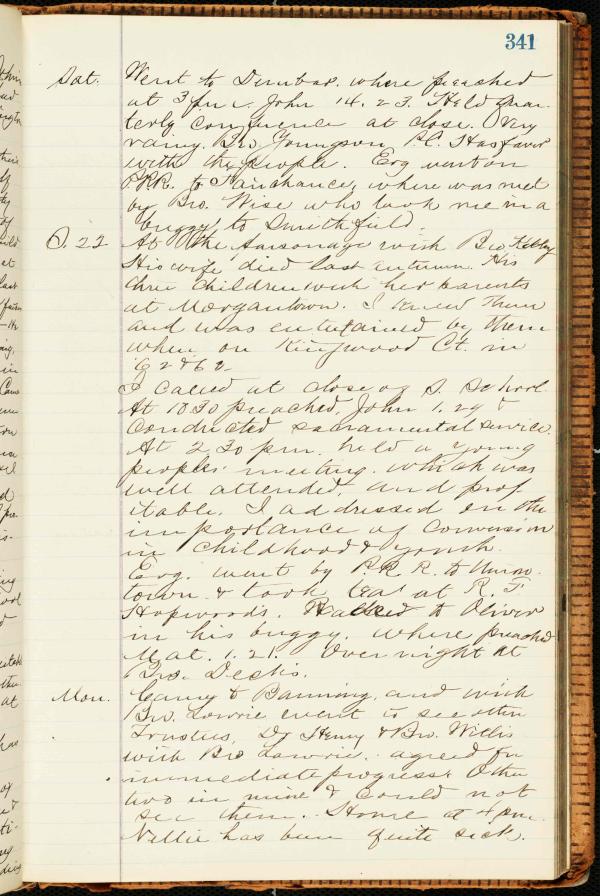 341
Sat. Went to Dunbar. where preached
at 3 pm. John 14.23. Held Quar-
terly Conference at close. Very
rainy. Bro Youngson P.C. Has favor
with the people. Evg went on
PRR. to Fairchance, where was met
by Bro. Wise who took me in a
buggy to Smithfield.
S. 22 At the Parsonage with Bro Kibby
His wife died last autumn. His
three children with her parents
at Morgantown. I knew them
and was entertained by them
when on Kingwood Ct. in
I called at close of S. School.
At 10 30 preached, John 1.29 &
conducted sacramental service.
At 2 30 pm. held a young
peoples' meeting. which was
well attended, and prof-
itable. I addressed on the
importance of Conversion
in childhood & youth.
Evg. went by P.R.R. to Union-
town & took tea at R. F.
Hopwoods. to Oliver
in his buggy. where preached
Mat. 1.21. Over night at
Bro.
Mon. Came to Banning, and with
Bro. Lowrie went to see other
Trustees, Dr Henry & Bro. Willis
with Bro Lowrie. agreed for
immediate progress. Other
two in mine & could not
see them. Home at 4 pm.
Nellie has been quite sick.